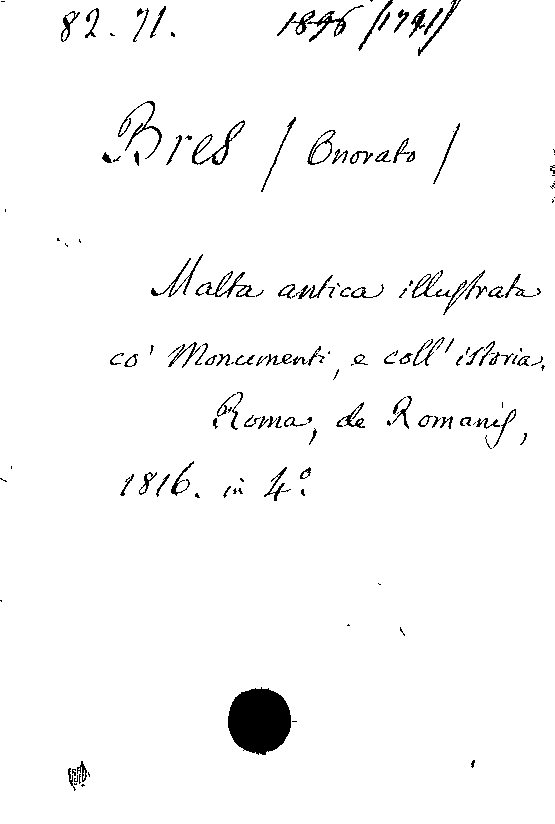 82. 71.
Bres / Onorato /
Malta antica illustrata
co' Monumenti, e coll' istoria.
Roma, de Romanis,
1816. in 4º.